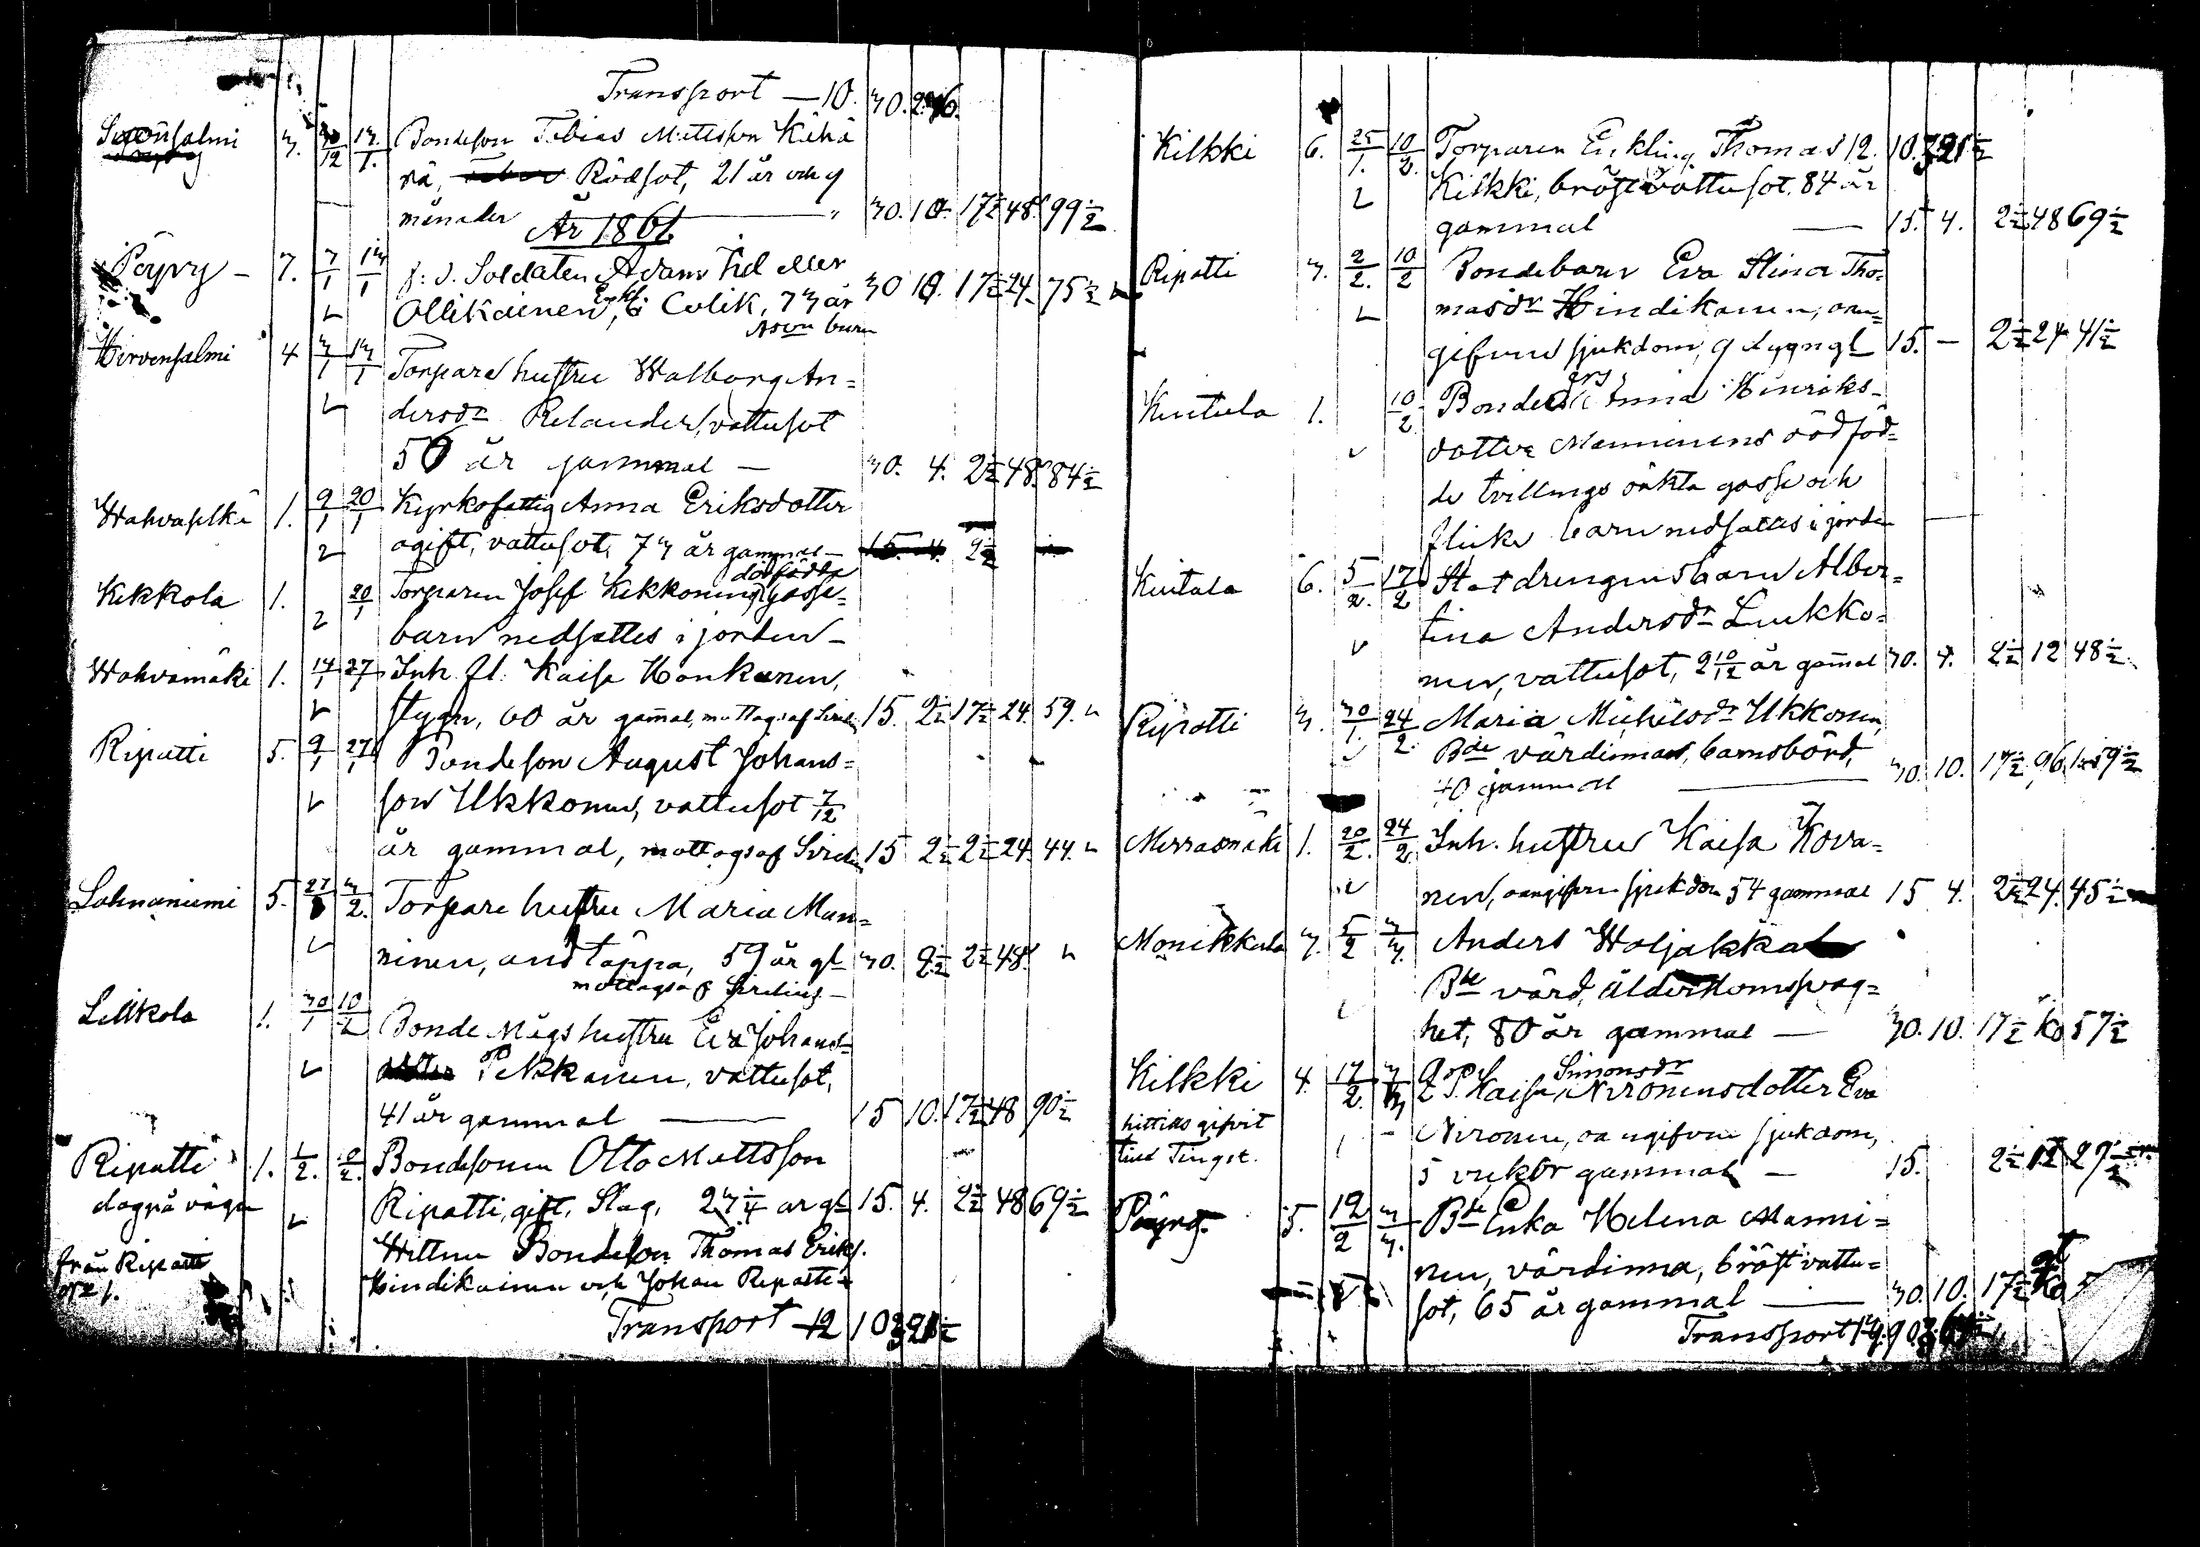 Transport — 10. 30. 2.
salmi 3. 30/12 13/1. Bondeson Tobias Mattsson Kähä
rä, Rödsot, 21 år och 9
månader 30. 10. 17½ 48 99½
År 1861
Päyry – 7. 7/1 13/1 f. d. Soldaten Adam
Ollikainen, Enkl. Colik, 73 år 30 10. 17½ 24. 75½
barn
Hirvensalmi 4 3/1 13/1 Torpare hustru Walborg An=
dersdr Relander, vattusot
56 år gammal — 30. 4. 2½ 48. 84½
Wahvaselkä 1. 9/1 20/1 Kyrkofattig Anna Eriksdotter
ogift, vattusot, 73 år gammal –
Kekkola 1. 20/1 Torparen Josef Kekkonens dödfödda gosse=
barn nedsattes i jorden –
Wahvamäki 1. 14/1 27/1 Inh. fl. Kaisa Honkanen,
stygn, 60 år gamal, mottags af 15. 2½ 17½ 24. 59.
Ripatti 5. 9/1 27/1 Bondeson August Johans=
son Ukkonen, vattusot 7/12
år gammal, mottogs af 15 2½ 2½ 24. 44.
Lahnaniemi 5. 3/2. Torpare hustru Maria Man=
ninen, andtäppa, 59 år gl 30. 2½ 2½ 48.
mottags af
Lillkola 1. 30/1 10/2 Bonde Mågs hustru Eva Johans=
Pekkanen, vattusot,
41 år gammal — 15 10. 17½ 48 90½
Ripatti 1. Bondsonen Otto Mattsson
dog på vägen Ripatti, gift, Slag, 15. 4. 2½ 48 69½
Wittnen Bondeson Thomas Eriks.
från Ripatti Hindikainen och Johan Ripatti
№ 1.
Transport 12 10
Kilkki 6. 25/1. 10/2. Torparen Enkling Thomas 12. 10.
Kilkki, bröst vattusot, 84 år
gammal — 15. 4. 2½ 48 69½
Ripatti 3. 2/2. 10/2 Bondebarn Eva Stina Tho=
masdr Hindikainen, oan=
gifven sjukdom, 9 dygn gl 15. — 2½ 24 41½
Kuitula 1. 10/2 Anna Hinriks-
dotter Manninens dödföd=
de tvillings oäkta gosse och
flicke barn nedsattes i jorden
Kuitula 6. 5/2. 17/2 Statdrengens barn Alber=
tina Andersdr Luukko=
nen, vattusot, 2 10/12 år gamal 30. 4. 2½ 12 48½
Ripatti 3. 30/1. 24/2 Maria Michelsdr Ukkonen,
Bde värdinna, barnsbörd,
40 gammal — 30. 10. 17½
Mirrasmäki 1. 20/2. 24/2 Inh. hustru Kaisa Kova=
nen, oangifven sjukdom 54 gammal 15 4. 2½ 24. 45½
Monikkala 3. 5/2 3/3. Anders Waljakka
Bde värd, Ålderdomssvag=
het, 80 år gammal — 30. 10. 17½ 57½
Kilkki 4. 17/2. Kaisa Simonsdr Nironens dotter Eva
hittills gifvit Nironen, oangifven sjukdom,
till Tingst. 5 veckor gammal — 15. 2½ 12 29½
Päyry. 5. 12/2 3/3. Bde Enka Helena Manni=
nen, värdinna, bröst vattu=
sot, 65 år gammal — 30. 10. 17½
Transport